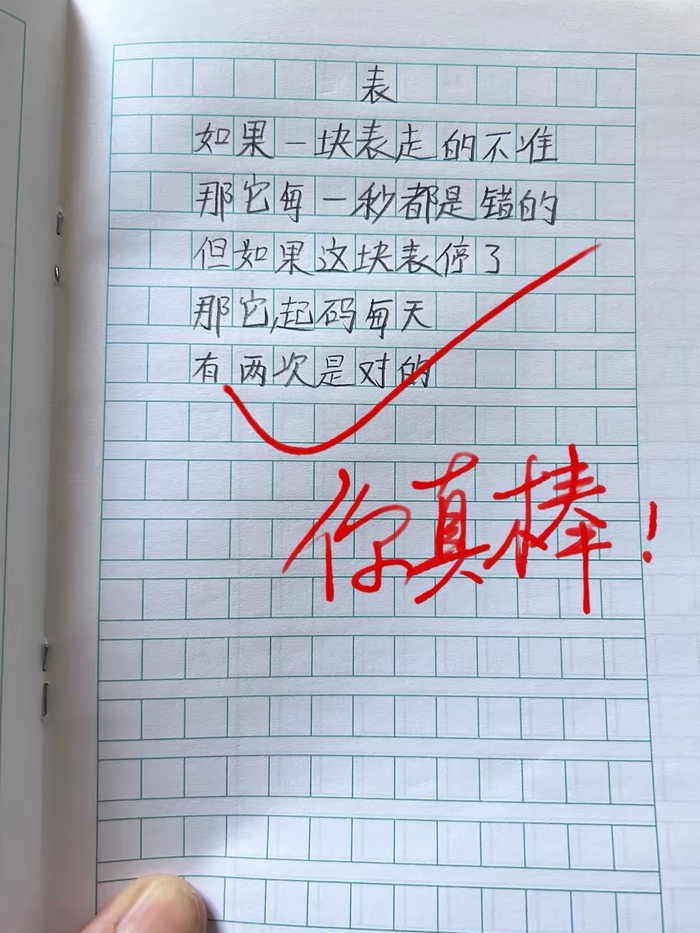 表
如果一块表走的不准
那它每一秒都是错的
但如果这块表停了
那它起码每天
有两次是对的
你真棒！